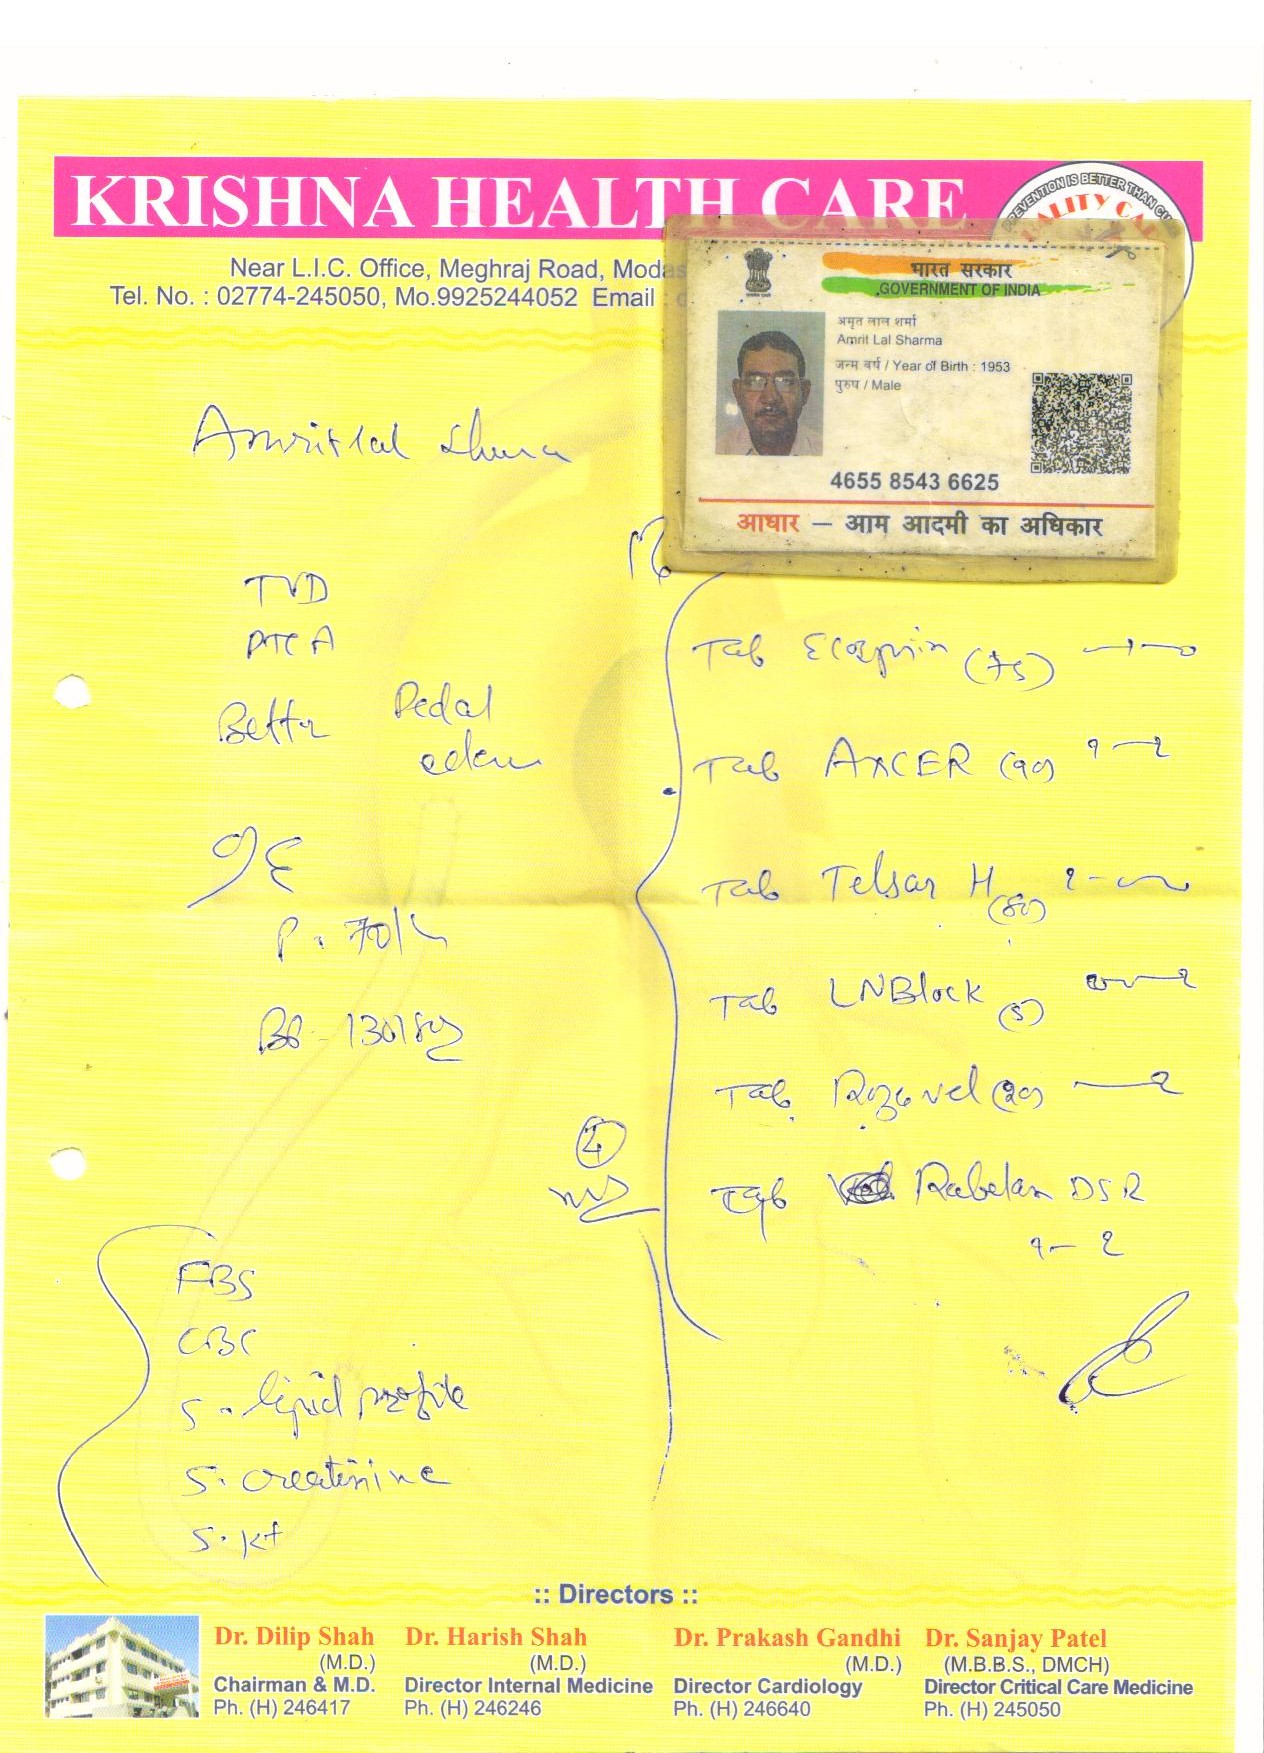 KRISHNA HEALTH CARE
PREVENTION IS BETTER THAN CU
ALITY CA
Near L.I.C. Office, Meghraj Road, Modas
Tel. No. : 02774-245050, Mo.9925244052 Email :
भारत सरकार
GOVERNMENT OF INDIA
अमृत लाल शर्मा
Amrit Lal Sharma
जन्म वर्ष / Year of Birth : 1953
पुरुष / Male
4655 8543 6625
आधार – आम आदमी का अधिकार
Amritlal
TVD
PTCA
Better Pedal
edem
O/E
P. 70/
BP - 130/80
Tab Ecosprin (75)
Tab AXCER (90) १ — १
Tab Telsar H (80)
Tab LNBlock (5)
Tab Rozavel (20)
Tab Rabelan DSR
१ - १
FBS
CBC
S. lipid profile
S. creatinine
S. K+
:: Directors ::
Dr. Dilip Shah
(M.D.)
Chairman & M.D.
Ph. (H) 246417
Dr. Harish Shah
(M.D.)
Director Internal Medicine
Ph. (H) 246246
Dr. Prakash Gandhi
(M.D.)
Director Cardiology
Ph. (H) 246640
Dr. Sanjay Patel
(M.B.B.S., DMCH)
Director Critical Care Medicine
Ph. (H) 245050